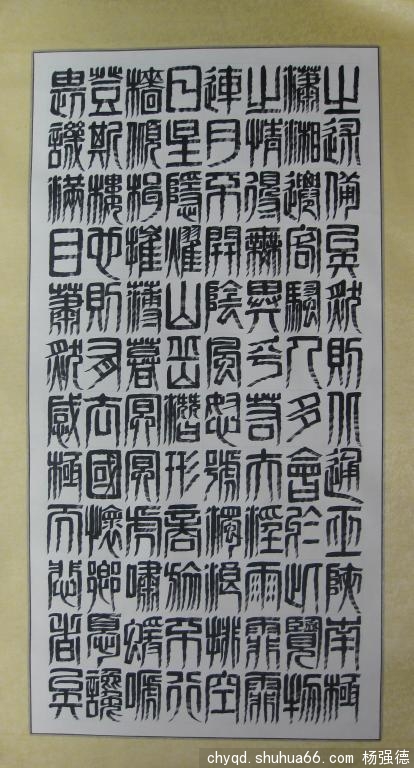 之述備矣然則北通巫峽南極
瀟湘遷客騷人多會於此覽物
之情得無異乎若夫霪雨霏霏
連月不開陰風怒號濁浪排空
日星隱耀山岳潛形商旅不行
檣傾楫摧薄暮冥冥虎嘯猿啼
登斯樓也則有去國懷鄉憂讒
畏譏滿目蕭然感極而悲者矣
chyqd.shuhua66.com 杨强德